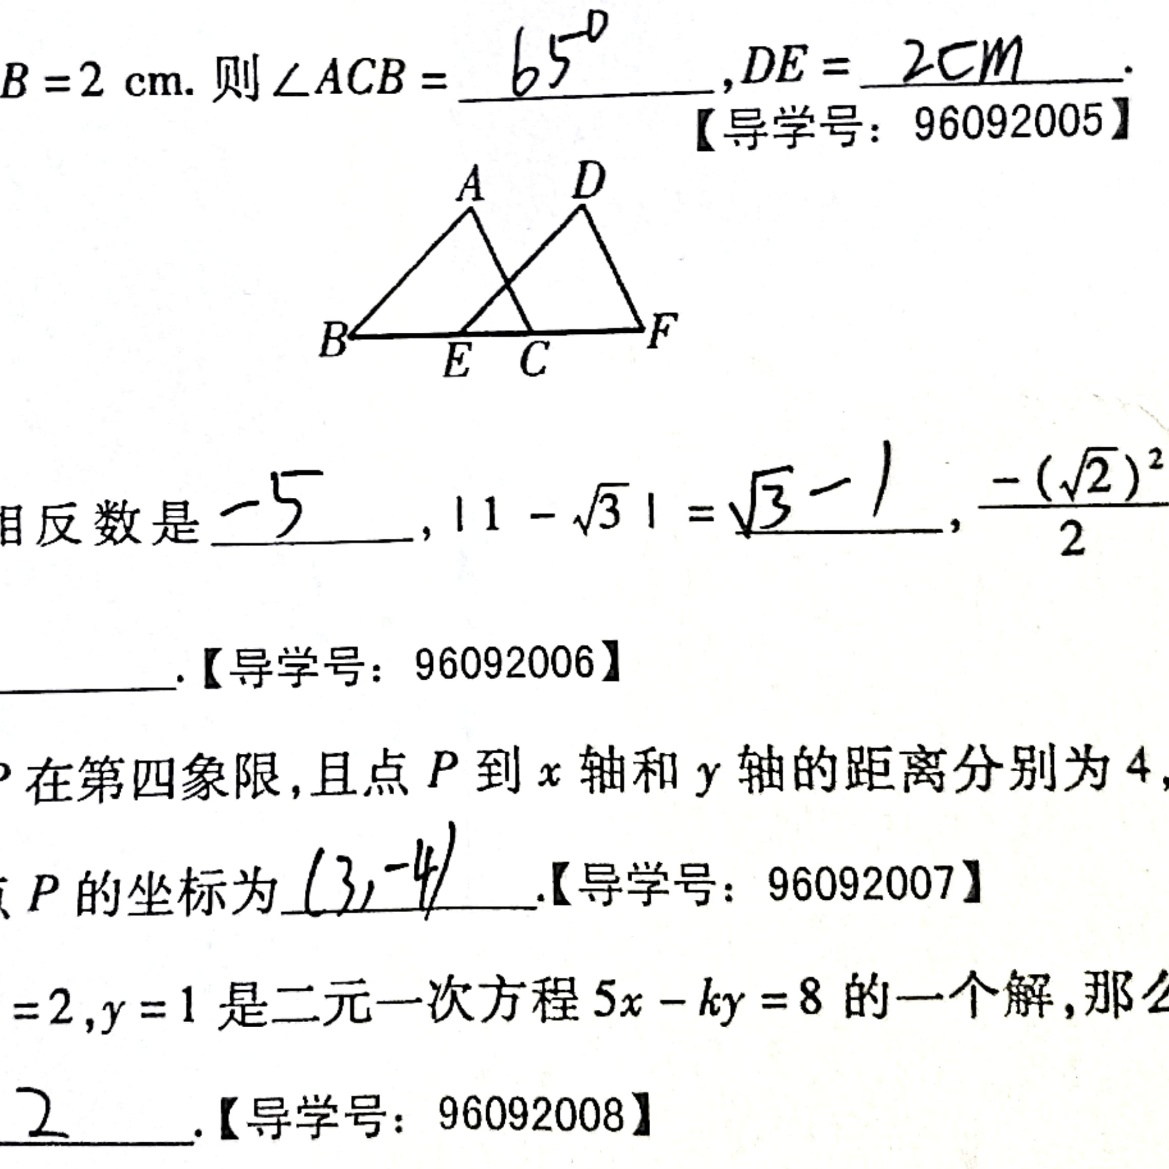 B = 2 cm. 则∠ACB = 65° ,DE = 2cm .
【导学号：96092005】
A D
B E C F
相反数是 -5 ,|1 - √3| = √3 - 1 , -(√2)²/2
.【导学号：96092006】
P 在第四象限,且点 P 到 x 轴和 y 轴的距离分别为 4,
点 P 的坐标为 (3,-4) .【导学号：96092007】
=2,y=1 是二元一次方程 5x - ky = 8 的一个解,那么
2 .【导学号：96092008】